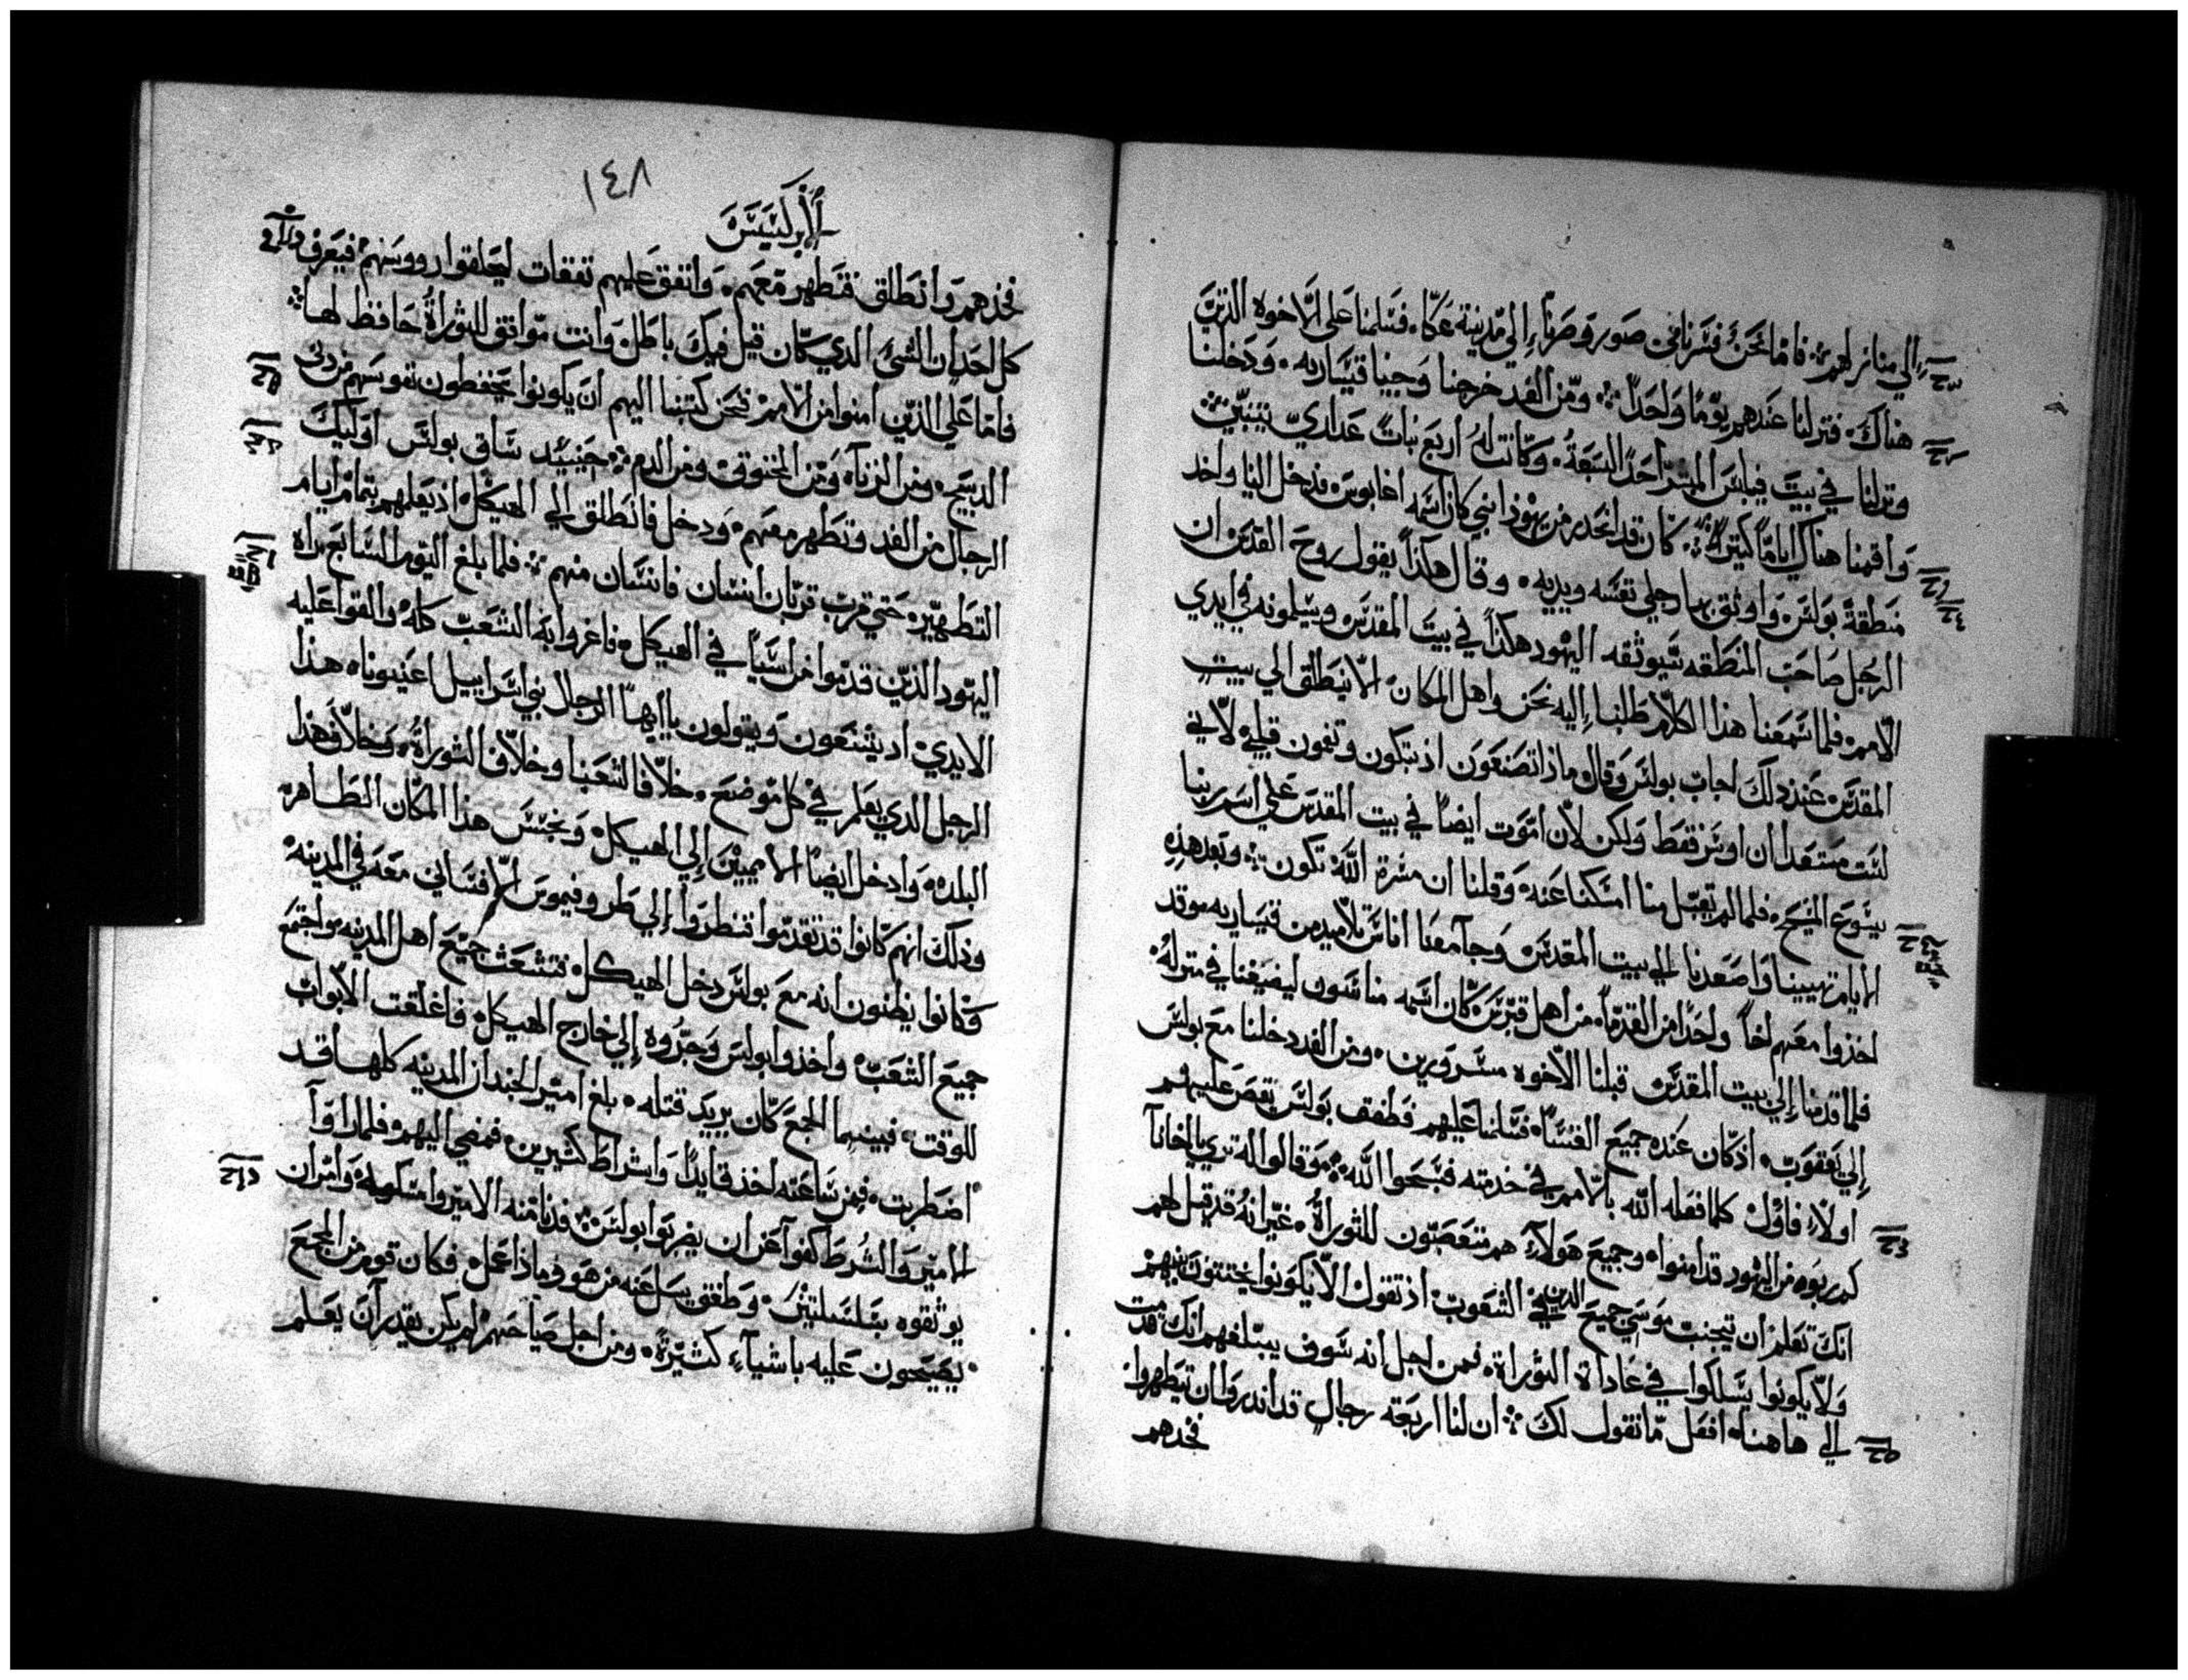 إلي منازلهم فاما نحن فسرنا من صور وصرنا إلي مدينة عكا فسلمنا علي الاخوه الذين
هناك فنزلنا عندهم يوما واحدا ومن الغد خرجنا وجينا قيساريه ودخلنا
ونزلنا في بيت فيلبس المبشر احد السبعة وكانت له اربع بنات عداري يتنبين
واقمنا هناك اياما كثيرة كان قد انحدر من يهوذا نبي كان اسمه اغابوس فدخل الينا واخد
منطقة بولس واوثق بها رجلي نفسه ويديه وقال هكذا يقول روح القدس ان
الرجل صاحب المنطقه سيوثقه اليهود هكذا في بيت المقدس ويسلمونه في ايدي
الامم فلما سمعنا هذا الكلام طلبنا إليه نحن واهل المكان الا ينطلق الي بيت
المقدس عند ذلك اجاب بولس وقال ماذا تصنعون اذ تبكون وتغمون قلبي لاني
لست مستعدا ان اوسر فقط ولكن لان اموت ايضا في بيت المقدس علي اسم ربنا
يسوع المسيح فلما لم يقبل منا امسكنا عنه وقلنا ان مسرة الله تكون وبعد هذه
الايام تهيينا واصعدنا الي بيت المقدس وجا معنا اناس تلاميد من قيساريه وقد
اخذوا معهم اخا واحدا من القدما من اهل قبرس كان اسمه مناسون ليضيفنا في منزله
فلما قدمنا إلي بيت المقدس قبلنا الاخوه مسرورين ومن الغد دخلنا مع بولس
إلي يعقوب اذ كان عنده جميع القسسا فسلمنا عليهم فطفق بولس يقص عليهم
اولا فاول كلما فعله الله بالامم في خدمته فسبحوا الله وقالوا له تري يا اخانا
كم ربوه من اليهود قد امنوا وجميع هولاء هم متعصبون للثوراة غير انه قد قيل لهم
انك تعلم ان يتجنب موسي جميع الذين في الشعوب اذ تقول الا يكونوا يختنون بنيهم
ولا يكونوا يسلكوا في عاداة الثوراة فمن اجل انه سوف يبتلغهم انك قدمت
الي هاهنا افعل ما نقول لك ان لنا اربعة رجال قد اندروا ان يتطهروا
فخدهم
١٤٨
الابركسيس
فخدهم وانطلق فتطهر معهم وانفق عليهم نفقات ليحلقوا رووسهم فيعرف
كل احد ان الشئ الدي كان قيل فيك باطل وانت موافق للثوراة حافظ لها
فاما علي الذين امنوا من الامم فنحن كتبنا اليهم ان يكونوا يحفطون نفوسهم من دبي
الدبيح ومن الزناه ومن المخنوق ومن الدم حينيد ساق بولس اوليك
الرجال من الغد وتطهر معهم ودخل فانطلق الي الهيكل اذ يعلمهم بتمام ايام
التطهير حتي قرب قربان انسان فانسان منهم فلما بلغ اليوم السابع راه
اليهود الذين قدموا من اسيا في الهيكل فاغروا به الشعب كله والقوا عليه
الايدي اد يشنعون ويقولون يا ايها الرجال بني اسراييل اعينونا هذا
الرجل الدي يعلم في كل موضع خلاف الشعبنا وخلاف الثوراة وخلاف هذا
البلد وادخل ايضا الامميين إلي الهيكل ونجس هذا المكان الطاهر
وذلك انهم كانوا قد تقدموا فنطروا إلي طروفيموس الافساني معه في المدينه
فكانوا يظنون انه مع بولس دخل الهيكل فتشعث جميع اهل المدينه واجتمع
جميع الشعب واخذوا بولس وجروه إلي خارج الهيكل فاغلقت الابواب
للوقت فبينما الجمع كان يريد قتله بلغ امير الجند ان المدينه كلها قد
اضطربت فمن ساعته اخذ قايدا واشراط كثيرين فمضي اليهم فلما راوا
الامير والشرط كفوا عن ان يضربوا بولس فدنا منه الامير وامسكه وامر ان
يوثقوه بسلسلتين وطفق يسل عنه من هو وماذا عمل فكان قوم من الجمع
يصيحون عليه باشياء كثيرة ومن اجل صياحهم لم يكن يقدر ان يعلم